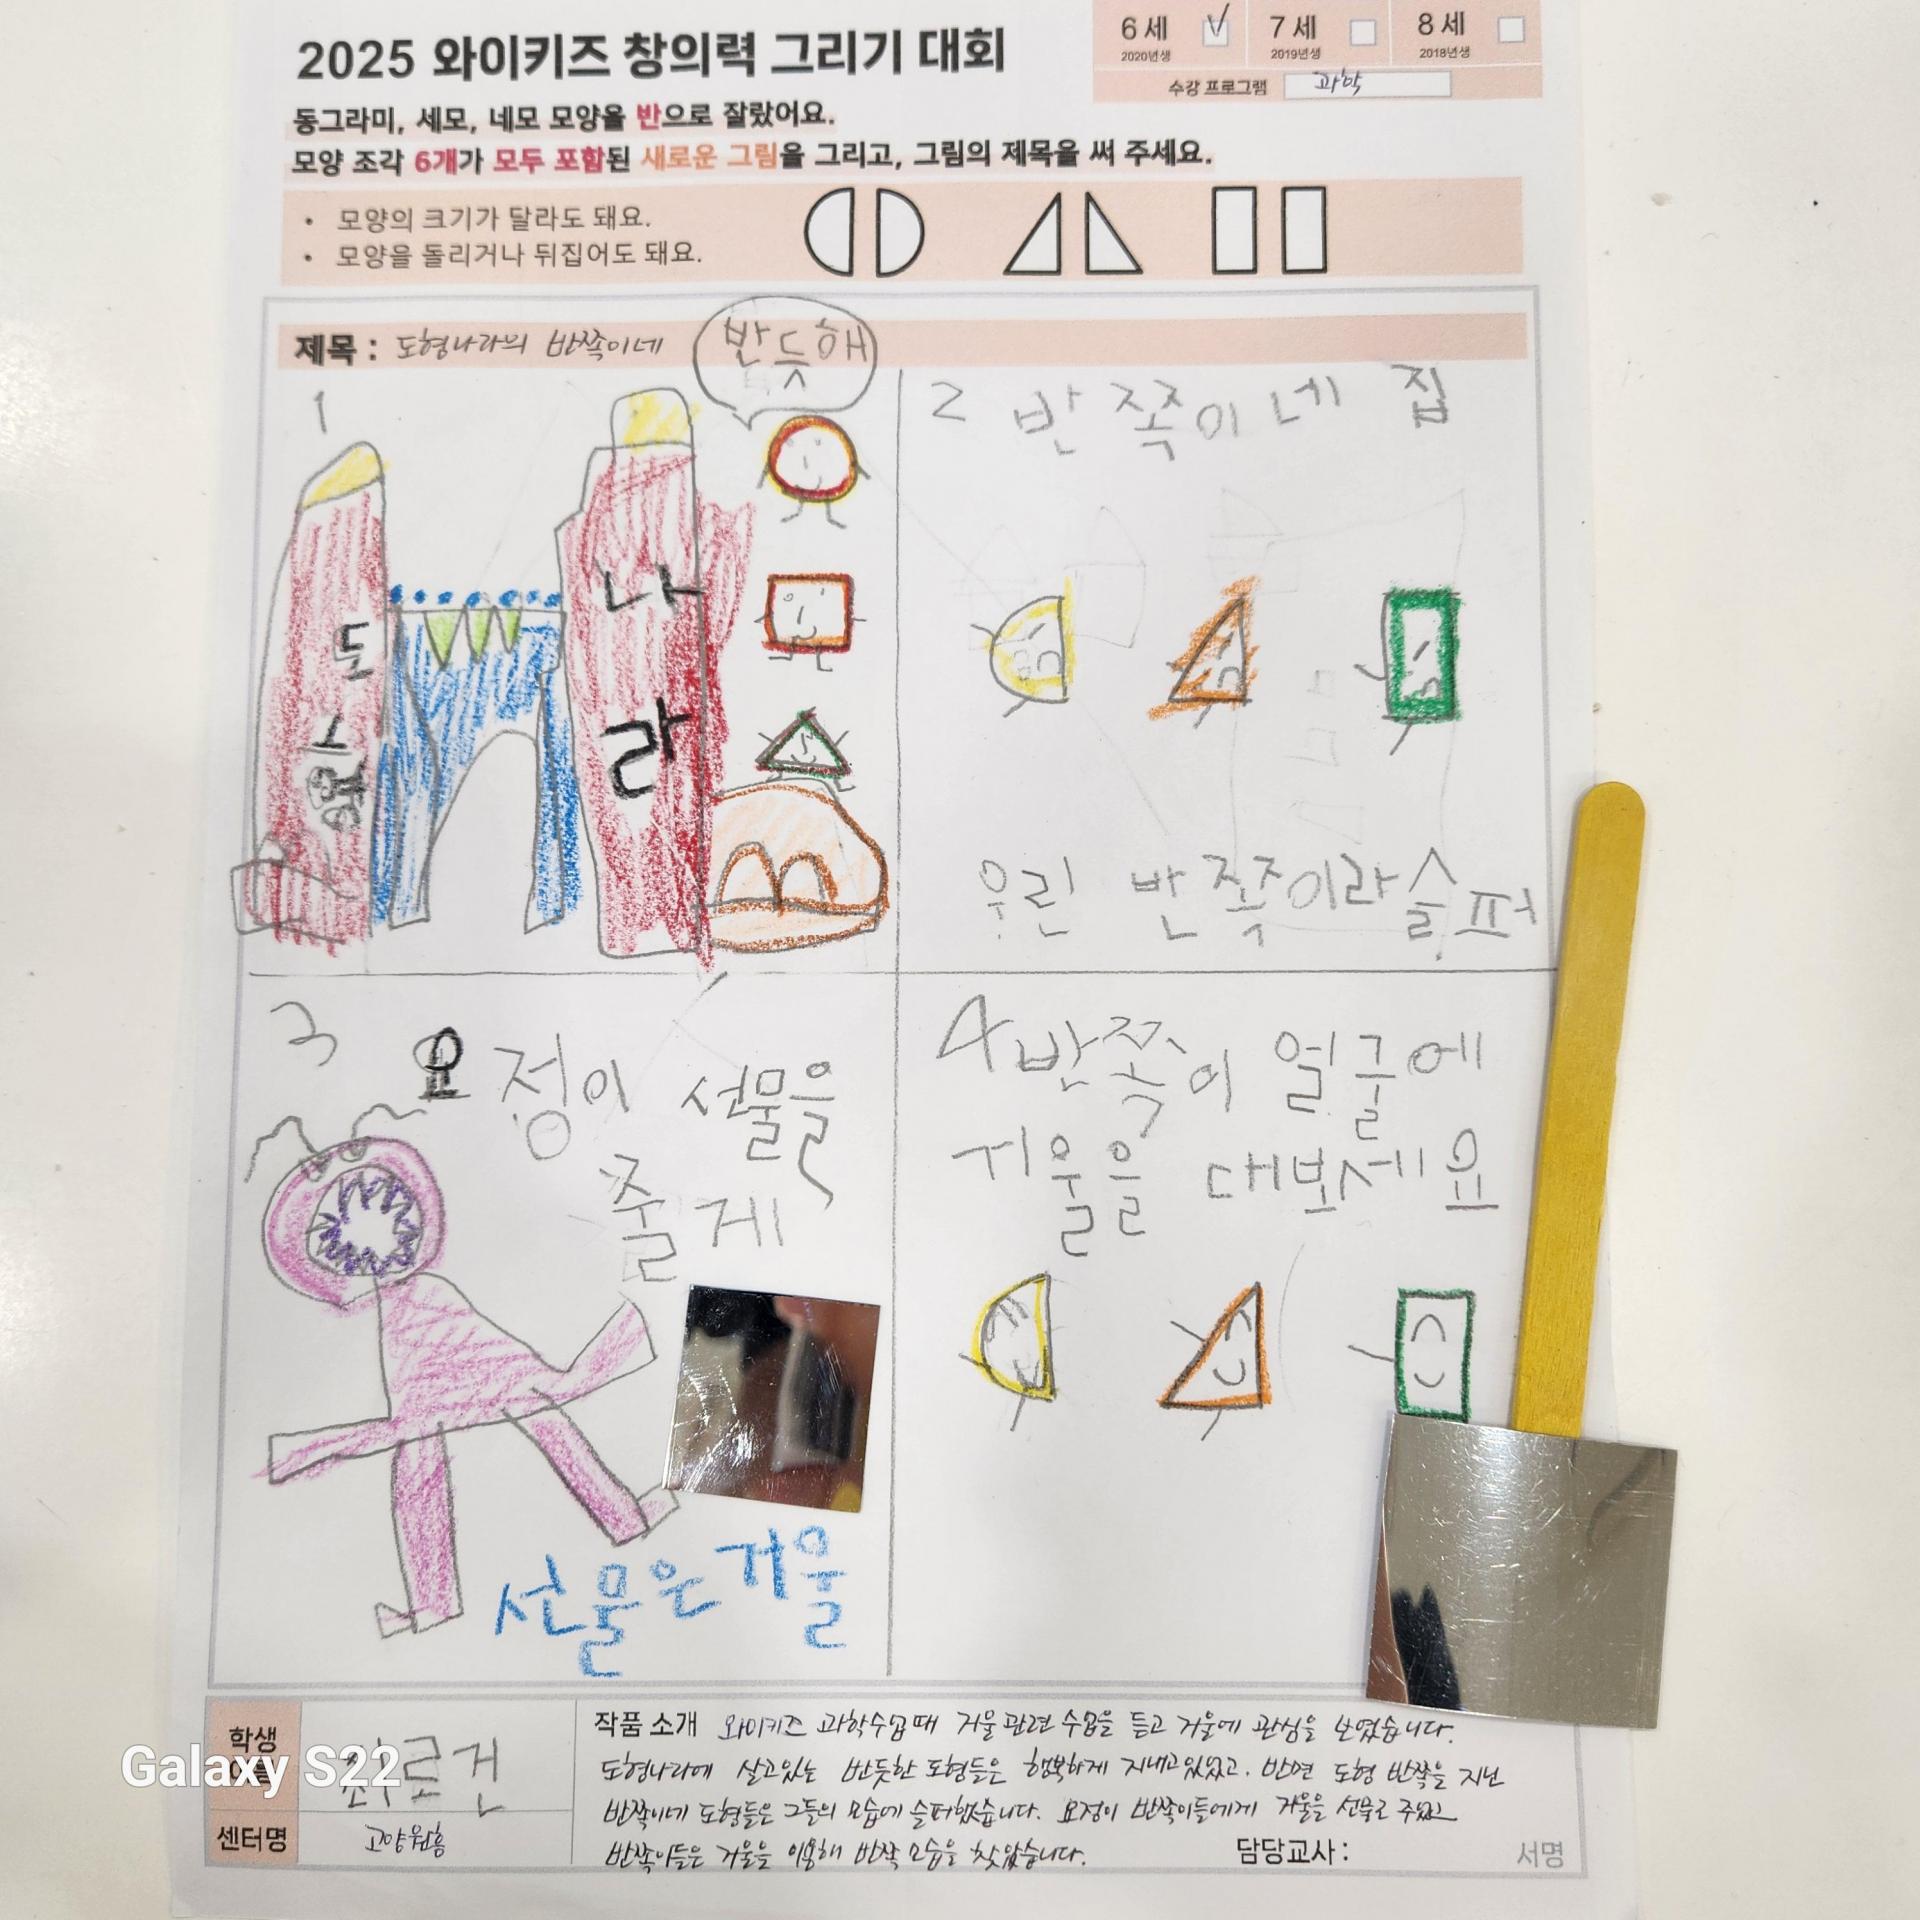 2025 와이키즈 창의력 그리기 대회
6세 7세 8세
2020년생 2019년생 2018년생
수강 프로그램 과학
동그라미, 세모, 네모 모양을 반으로 잘랐어요.
모양 조각 6개가 모두 포함된 새로운 그림을 그리고, 그림의 제목을 써 주세요.
• 모양의 크기가 달라도 돼요.
• 모양을 돌리거나 뒤집어도 돼요.
제목 : 도형나라의 반쪽이네
반듯해
1
도
형
나
라
2 반쪽이네 집
우린 반쪽이라 슬퍼
3 요정이 선물을
줄게
선물은 거울
4 반쪽이 얼굴에
거울을 대보세요
학생
이름
로건
센터명 고양원흥
작품 소개 와이키즈 과학수업때 거울관련 수업을 듣고 거울에 관심을 보였습니다.
도형나라에 살고있는 반듯한 도형들은 행복하게 지내고있었고. 반면 도형 반쪽을 지닌
반쪽이네 도형들은 그들의 모습에 슬퍼했습니다. 요정이 반쪽이들에게 거울을 선물로 주었고
반쪽이들은 거울을 이용해 반쪽 모습을 찾았습니다.
담당교사 : 서명
Galaxy S22